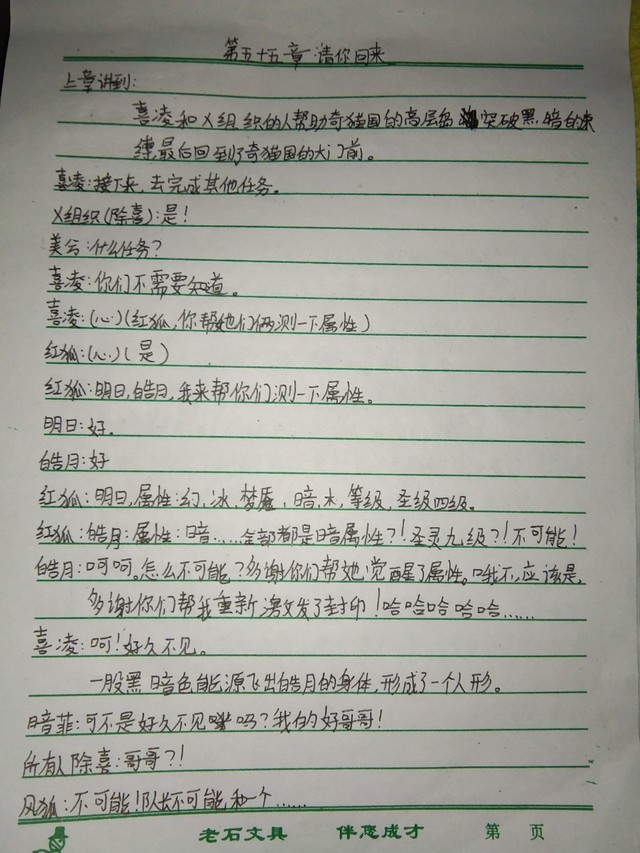 第五十五章 请你回来
上章讲到:
喜凌和X组织的人帮助奇猫国的高层突破黑暗的束
缚,最后回到了奇猫国的大门前。
喜凌:接下来,去完成其他任务。
X组织(除喜):是!
美兮:什么任务?
喜凌:你们不需要知道。
喜凌:(心)(红狐,你帮她们俩测一下属性)
红狐:(心)(是)
红狐:明日,皓月,我来帮你们测一下属性。
明日:好。
皓月:好
红狐:明日,属性:幻,冰,梦魇,暗,木,等级,圣级四级。
红狐:皓月:属性:暗……全部都是暗属性?!圣灵九级?!不可能!
皓月:呵呵。怎么不可能?多谢你们帮她觉醒了属性。哦不,应该是,
多谢你们帮我重新激发了封印!哈哈哈哈哈……
喜凌:呵!好久不见。
一股黑暗色能源飞出皓月的身体,形成了一个人形。
暗菲:可不是好久不见吗?我的好哥哥!
所有人除喜:哥哥?!
风狐:不可能!队长不可能和一个……
老石文具 伴您成才 第 页